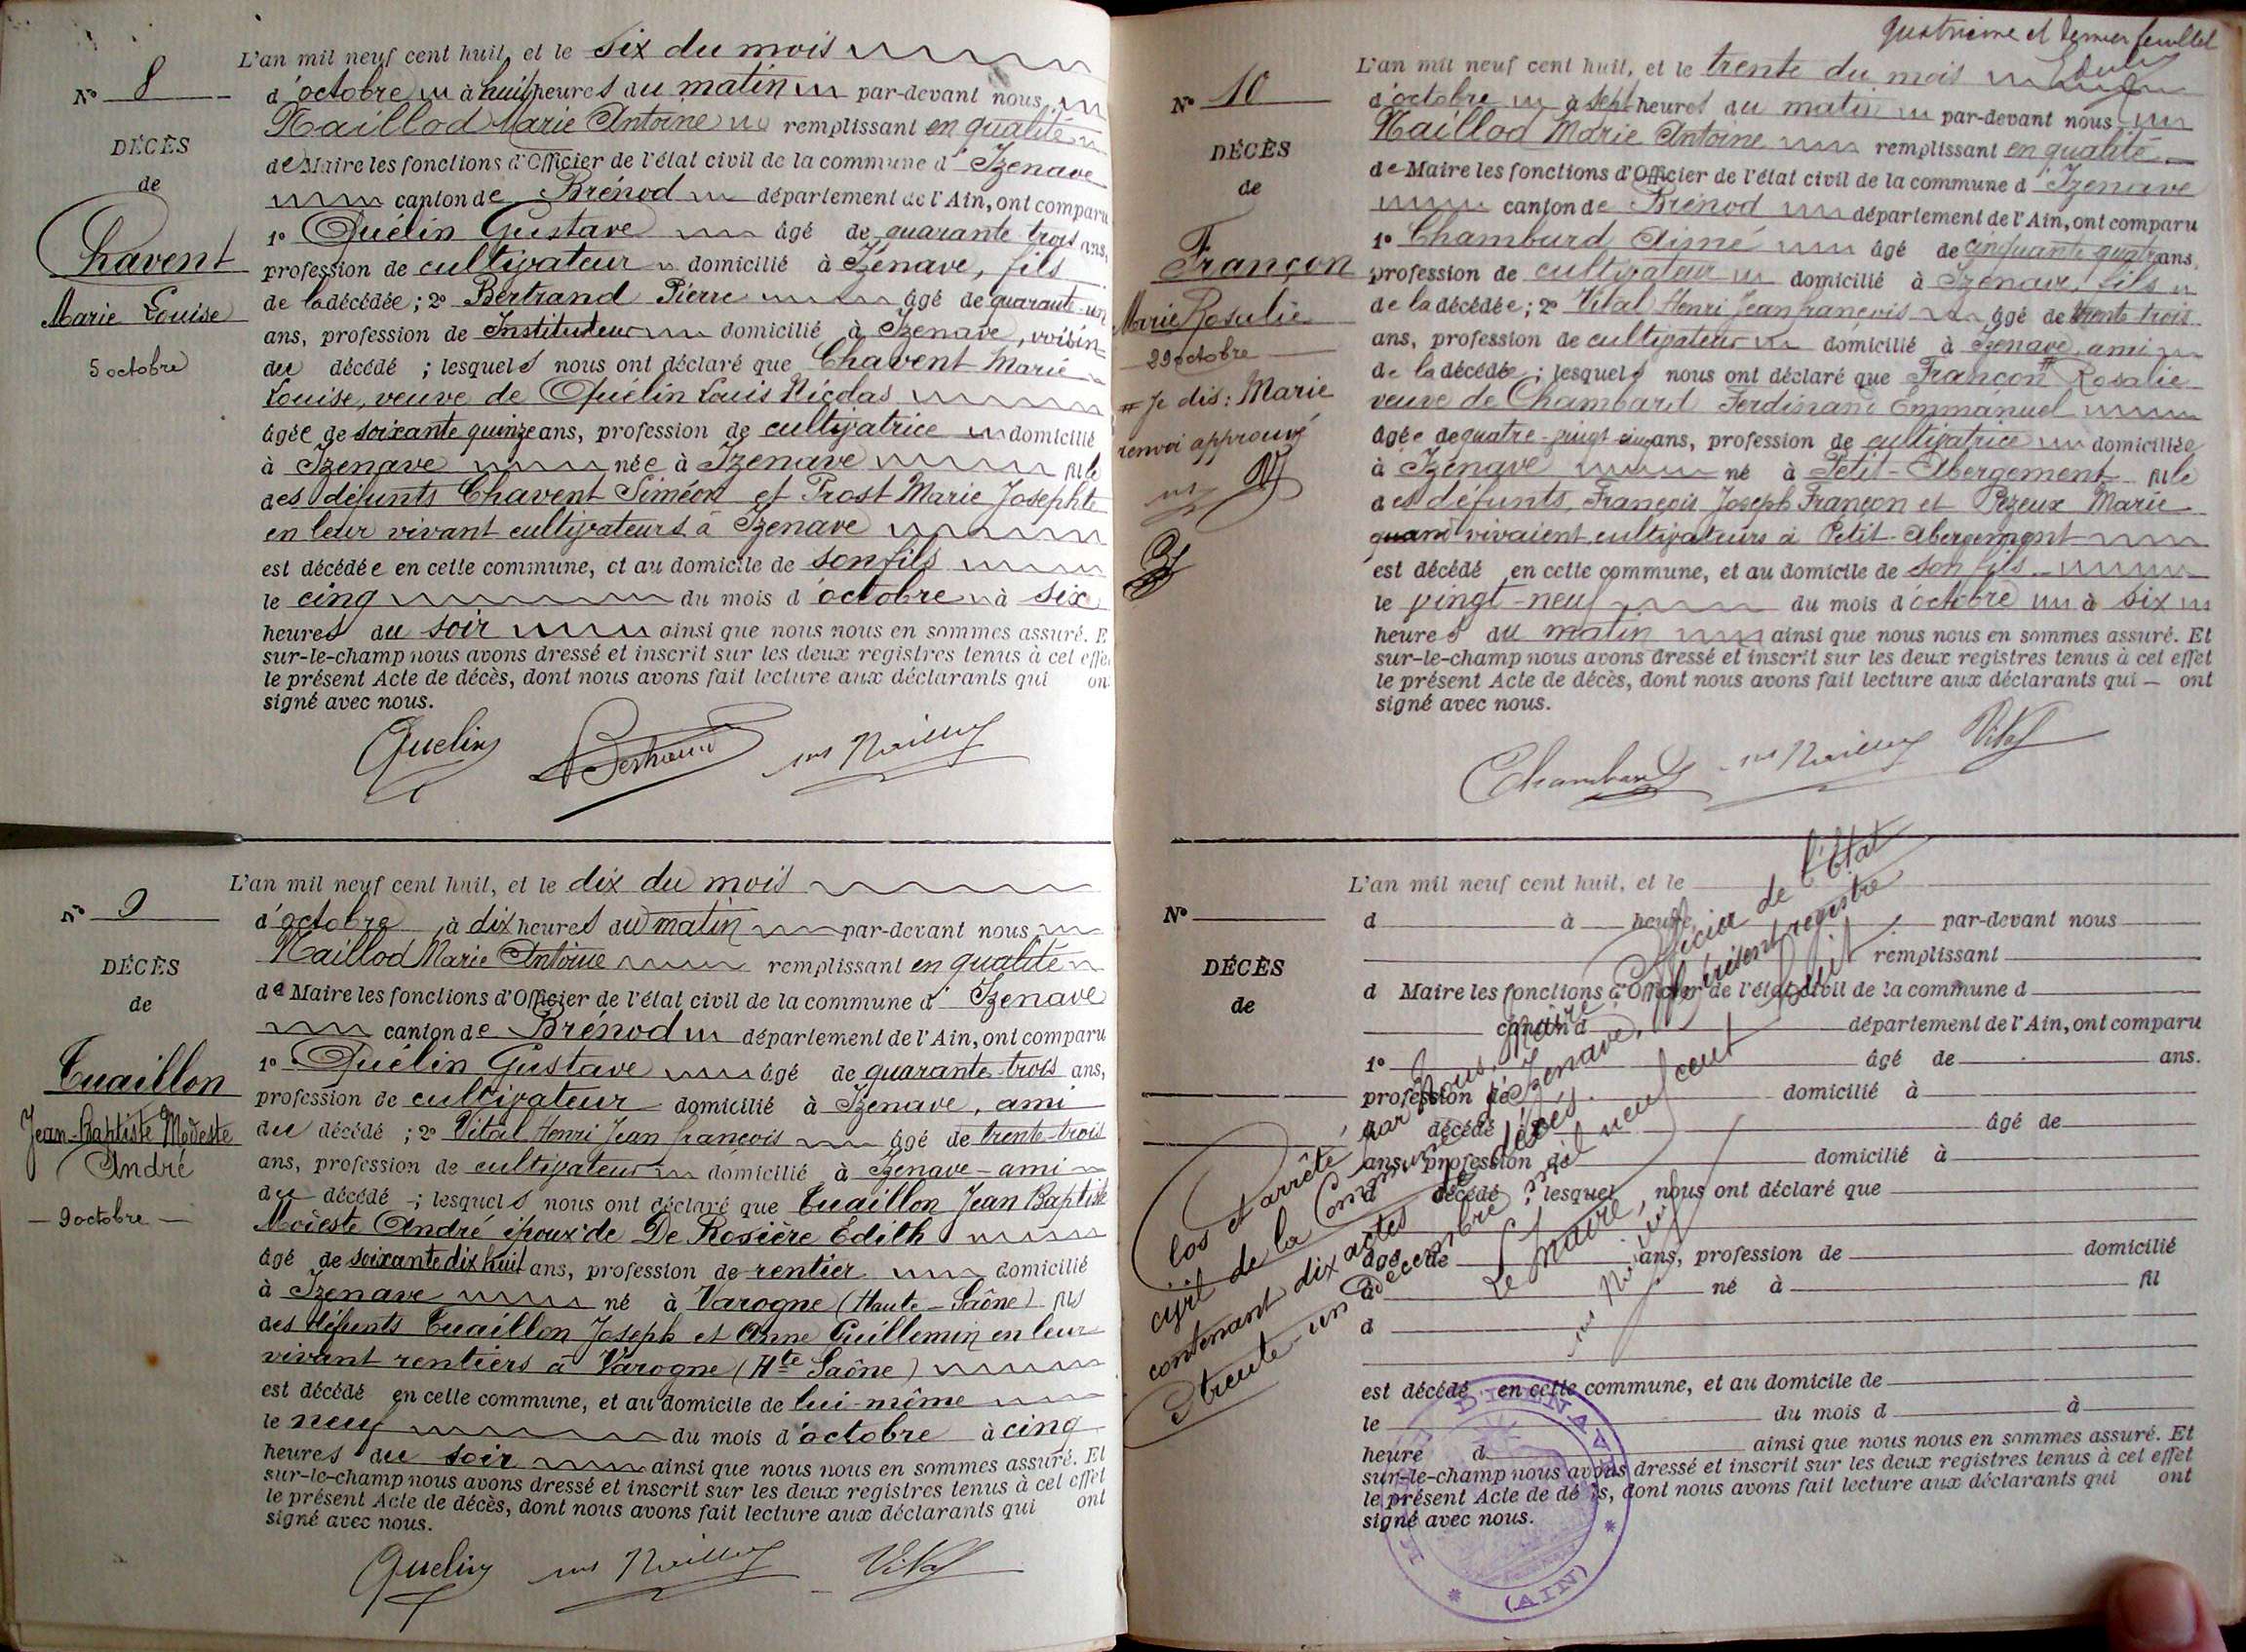 L'an mil neuf cent huit, et le six du mois
N° 8
d'octobre à huit heures du matin par-devant nous
Maillod Marie Antoine remplissant en qualité
DÉCÈS
de Maire les fonctions d'Officier de l'état civil de la commune d'Izenave
de
canton de Brénod département de l'Ain, ont comparu
1° Quélin Gustave âgé de quarante trois ans,
Chavent
profession de cultivateur domicilié à Izenave, fils
de la décédée ; 2° Bertrand Pierre âgé de quarante-un
Marie Louise
ans, profession de Instituteur domicilié à Izenave, voisin
5 octobre
du décédé ; lesquels nous ont déclaré que Chavent Marie
Louise, veuve de Quélin Louis Nicolas
âgée de soixante quinze ans, profession de cultivatrice domicilié
à Izenave née à Izenave fille
des défunts Chavent Siméon et Prost Marie Josephte
en leur vivant cultivateurs à Izenave
est décédée en cette commune, et au domicile de son fils
le cinq du mois d'octobre à six
heures du soir ainsi que nous nous en sommes assuré. E
sur-le-champ nous avons dressé et inscrit sur les deux registres tenus à cet effe
le présent Acte de décès, dont nous avons fait lecture aux déclarants qui on
signé avec nous.
Quelin Bertrand Maillod
L'an mil neuf cent huit, et le dix du mois
N° 9
d'octobre à dix heures du matin par-devant nous
Maillod Marie Antoine remplissant en qualité
DÉCÈS
de Maire les fonctions d'Officier de l'état civil de la commune d'Izenave
de
canton de Brénod département de l'Ain, ont comparu
1° Quélin Gustave âgé de quarante-trois ans,
Tuaillon
profession de cultivateur domicilié à Izenave, ami
Jean-Baptiste Modeste
du décédé ; 2° Vital Henri Jean françois âgé de trente-trois
André
ans, profession de cultivateur domicilié à Izenave - ami
du décédé ; lesquels nous ont déclaré que Tuaillon Jean Baptiste
9 octobre
Modeste André époux de De Rosière Edith
âgé de soixante dix huit ans, profession de rentier domicilié
à Izenave né à Varogne (Haute-Saône) fils
des défunts Tuaillon Joseph et Anne Guillemin en leur
vivant rentiers à Varogne (Hte Saône)
est décédé en cette commune, et au domicile de lui-même
le neuf du mois d'octobre à cinq
heures du soir ainsi que nous nous en sommes assuré. Et
sur-le-champ nous avons dressé et inscrit sur les deux registres tenus à cet effet
le présent Acte de décès, dont nous avons fait lecture aux déclarants qui ont
signé avec nous.
Quelin Maillod Vital
quatrième et dernier feuillet
L'an mil neuf cent huit, et le trente du mois
N° 10
d'octobre à sept heures du matin par-devant nous
Maillod Marie Antoine remplissant en qualité
DÉCÈS
de Maire les fonctions d'Officier de l'état civil de la commune d'Izenave
de
canton de Brénod département de l'Ain, ont comparu
1° Chambard Aimé âgé de cinquante quatre ans,
Françon
profession de cultivateur domicilié à Izenave, fils
Marie Rosalie
de la décédée ; 2° Vital Henri Jean françois âgé de trente trois
29 octobre
ans, profession de cultivateur domicilié à Izenave, ami
de la décédée ; lesquels nous ont déclaré que Françon # Rosalie
# Je dis : Marie
veuve de Chambard Ferdinand Emmanuel
renvoi approuvé
âgée de quatre-vingt cinq ans, profession de cultivatrice domiciliée
à Izenave né à Petit-Abergement fille
des défunts, François Joseph Françon et Pezeux Marie
quand vivaient cultivateurs à Petit-Abergement
est décédé en cette commune, et au domicile de son fils
le vingt-neuf du mois d'octobre à six
heures du matin ainsi que nous nous en sommes assuré. Et
sur-le-champ nous avons dressé et inscrit sur les deux registres tenus à cet effet
le présent Acte de décès, dont nous avons fait lecture aux déclarants qui — ont
signé avec nous.
Chambard Maillod Vital
L'an mil neuf cent huit, et le
N°
d à heure par-devant nous
remplissant
DÉCÈS
d Maire les fonctions d'Officier de l'état civil de la commune d
de
canton d département de l'Ain, ont comparu
1° âgé de ans.
profession de domicilié à
décédé ; 2° âgé de
ans, profession de domicilié à
d décédé ; lesquel nous ont déclaré que
âgé de ans, profession de domicilié
à né à fil
d
est décédé en cette commune, et au domicile de
le du mois d à
heure d ainsi que nous nous en sommes assuré. Et
sur-le-champ nous avons dressé et inscrit sur les deux registres tenus à cet effet
le présent Acte de décès, dont nous avons fait lecture aux déclarants qui ont
signé avec nous.
Clos et arrêté par Nous, Maire, Officier de l'Etat
civil de la Commune d'Izenave, le présent registre
contenant dix actes de décès,
trente-un Décembre mil neuf cent huit.
Le Maire,
Maillod
D'IZENAVE
(AIN)